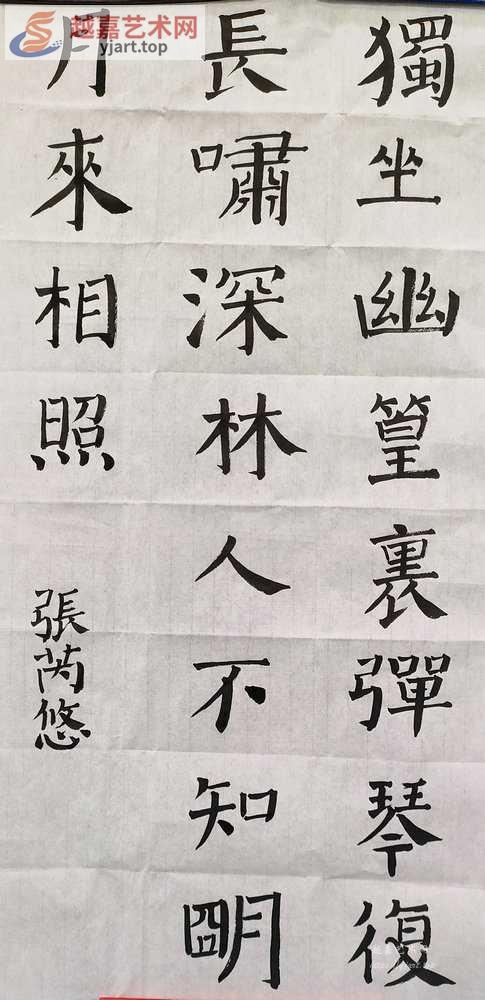 獨坐幽篁裏彈琴復
長嘯深林人不知明
月來相照
張芮悠
越嘉艺术网
yjart.top